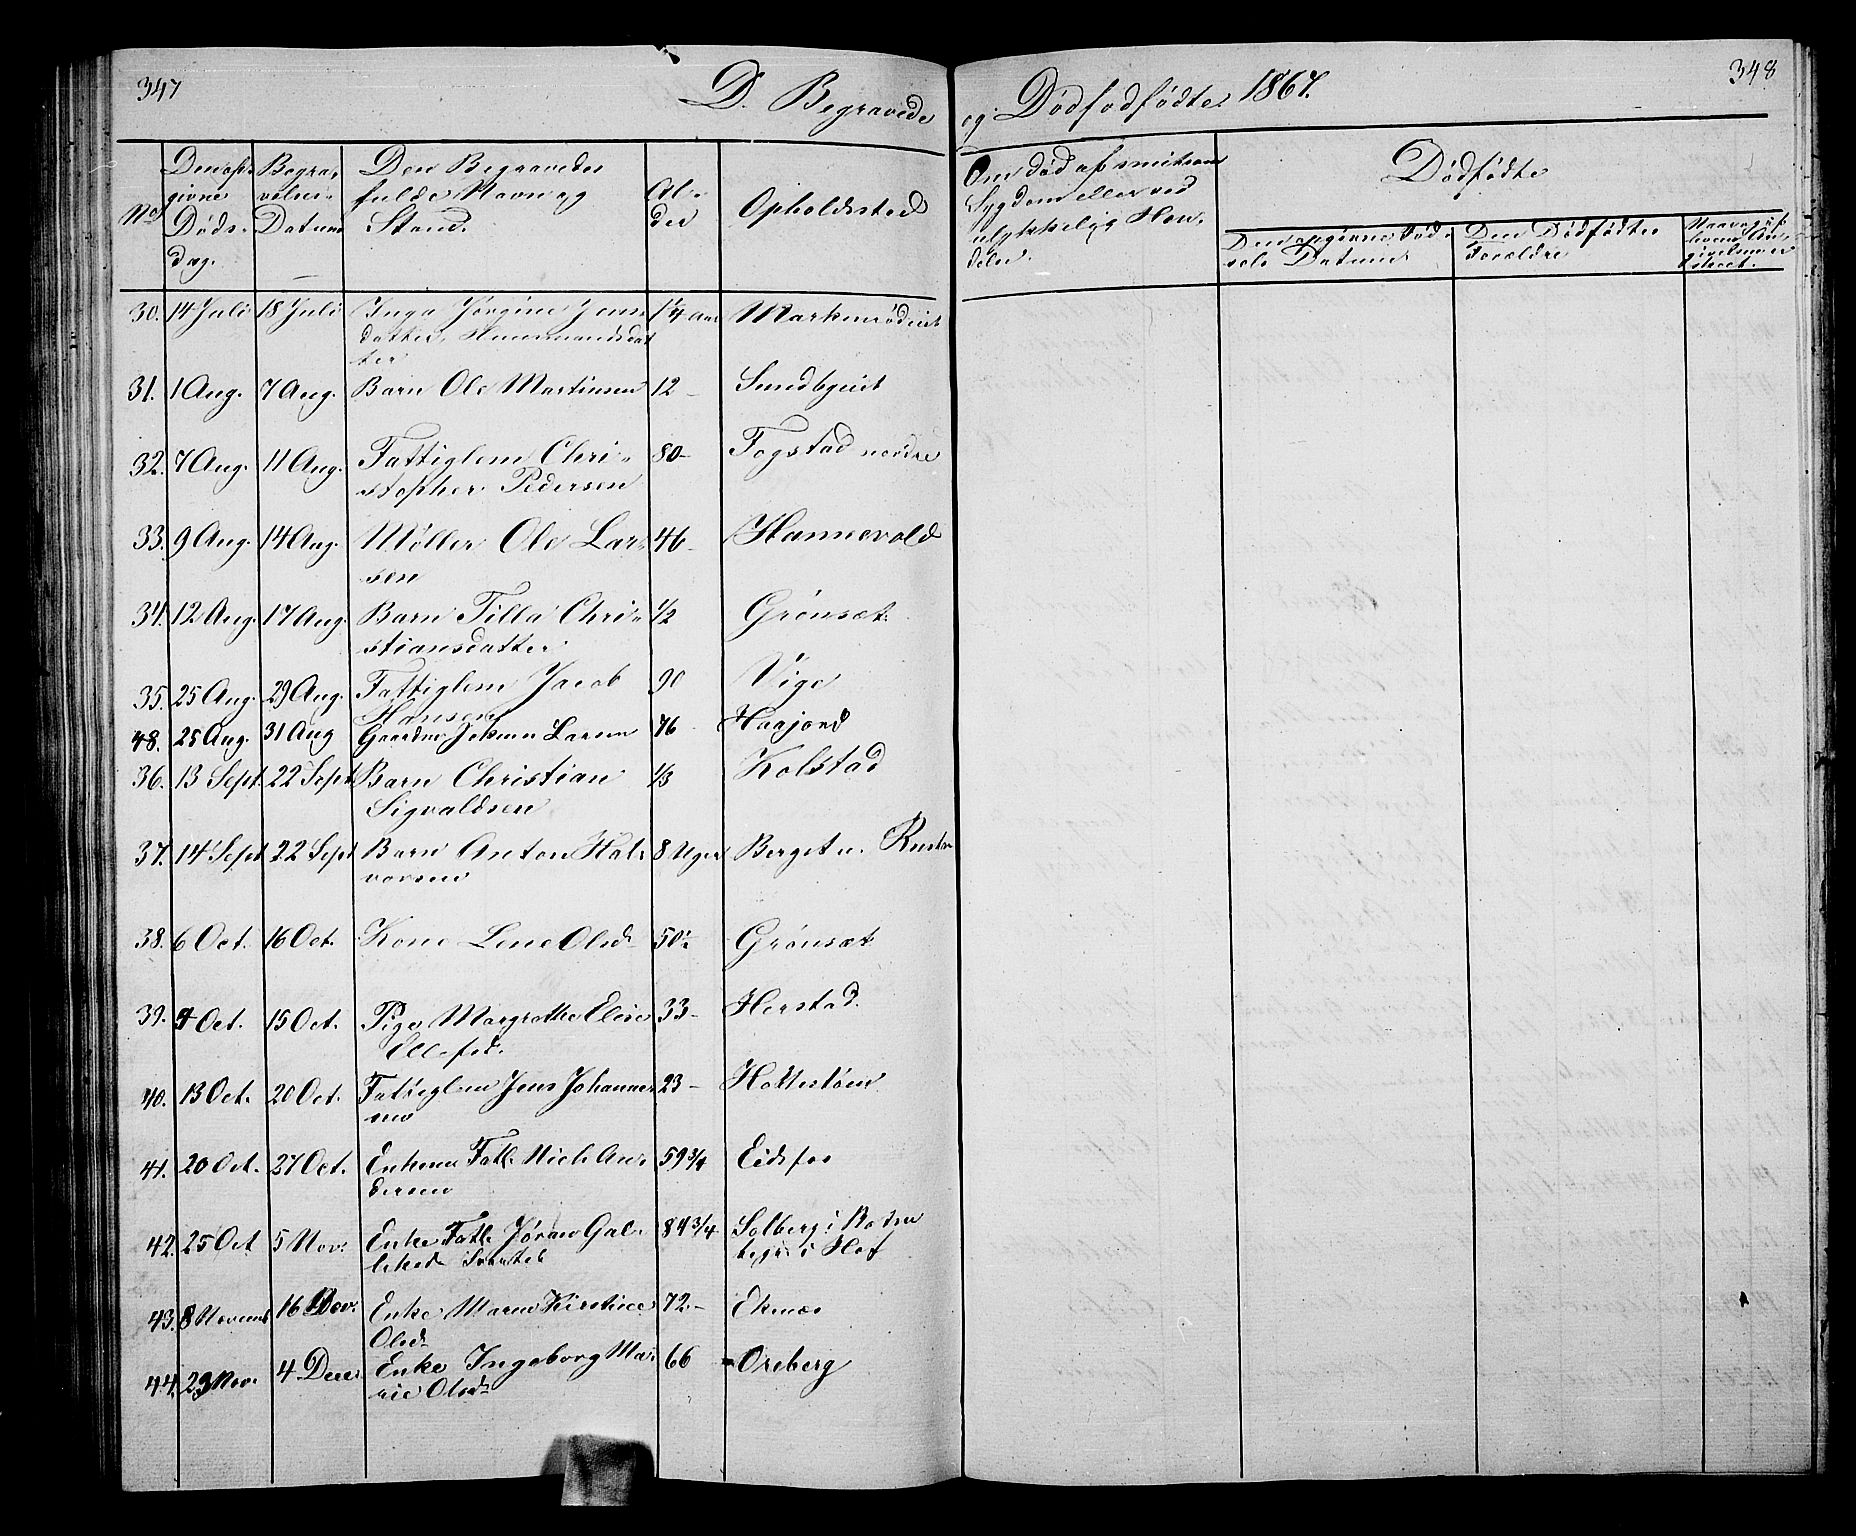 347
D. Begravede og Dødfødfødte 1867.
348
No
Den opgivne Døds-dag.
Begravelses-Datum
Den Begravedes fulde Navn og Stand.
Alder
Opholdssted
Om død af smitsom Sygdom eller ved ulykkelig Hændelse.
Dødfødte
Den opgivne Fødsels Datum
Den Dødfødtes Forældre
30. 14 Juli 18 Juli Inga Jørgine Jens 1¼ Aar
datter, Huusmandsdat
ter
31. 1 Aug. 7 Aug. Barn Ole Martinsen 12 - Sundbyeiet
32. 7 Aug. 11 Aug. Fattiglem Chri- 80- Fogstad nordre
stopher Pedersen
33. 9 Aug. 14 Aug. Møller Ole Lar- 46- Hannevold
sen
34. 12 Aug. 17 Aug. Barn Tilla Chri- 1/2 Grønsæt
stiansdatter
35. 25 Aug. 29 Aug. Fattiglem Jacob 90 Vige
Hansen
48. 25 Aug. 31 Aug Gaardm. Johan Larsen 76 Haajord
36. 13 Sept. 22 Sept Barn Christian 1/3 Kolstad
Sigvaldsen
37. 14 Sept 22 Sept Barn Anton Hal- 8 Uger Berget u.
vorsen
38. 6 Oct. 16 Oct. Kone Lene Olsd. 50½ Grønsæt
39. 9 Oct. 15 Oct. Pige Margrethe Elise 33- Herstad.
Ellefsd.
40. 13 Oct. 20 Oct. Fattiglem Jens Johannes 23-
sen
41. 20 Oct. 27 Oct. Enkem. Fatl. Niels An- 59 3/4 Eidsfos
dersen
42. 25 Oct 5 Nov. Enke Fatl. Jøran Gab- 84 3/4 Solberg i
i Hof
43. 8 Novemb 16 Nov. Enke Maren Kirstine 72.- Eknæs
Olsd.
44. 23 Nov. 4 Decr Enke Ingeborg Ma- 66 Oreberg
rie Olsd.